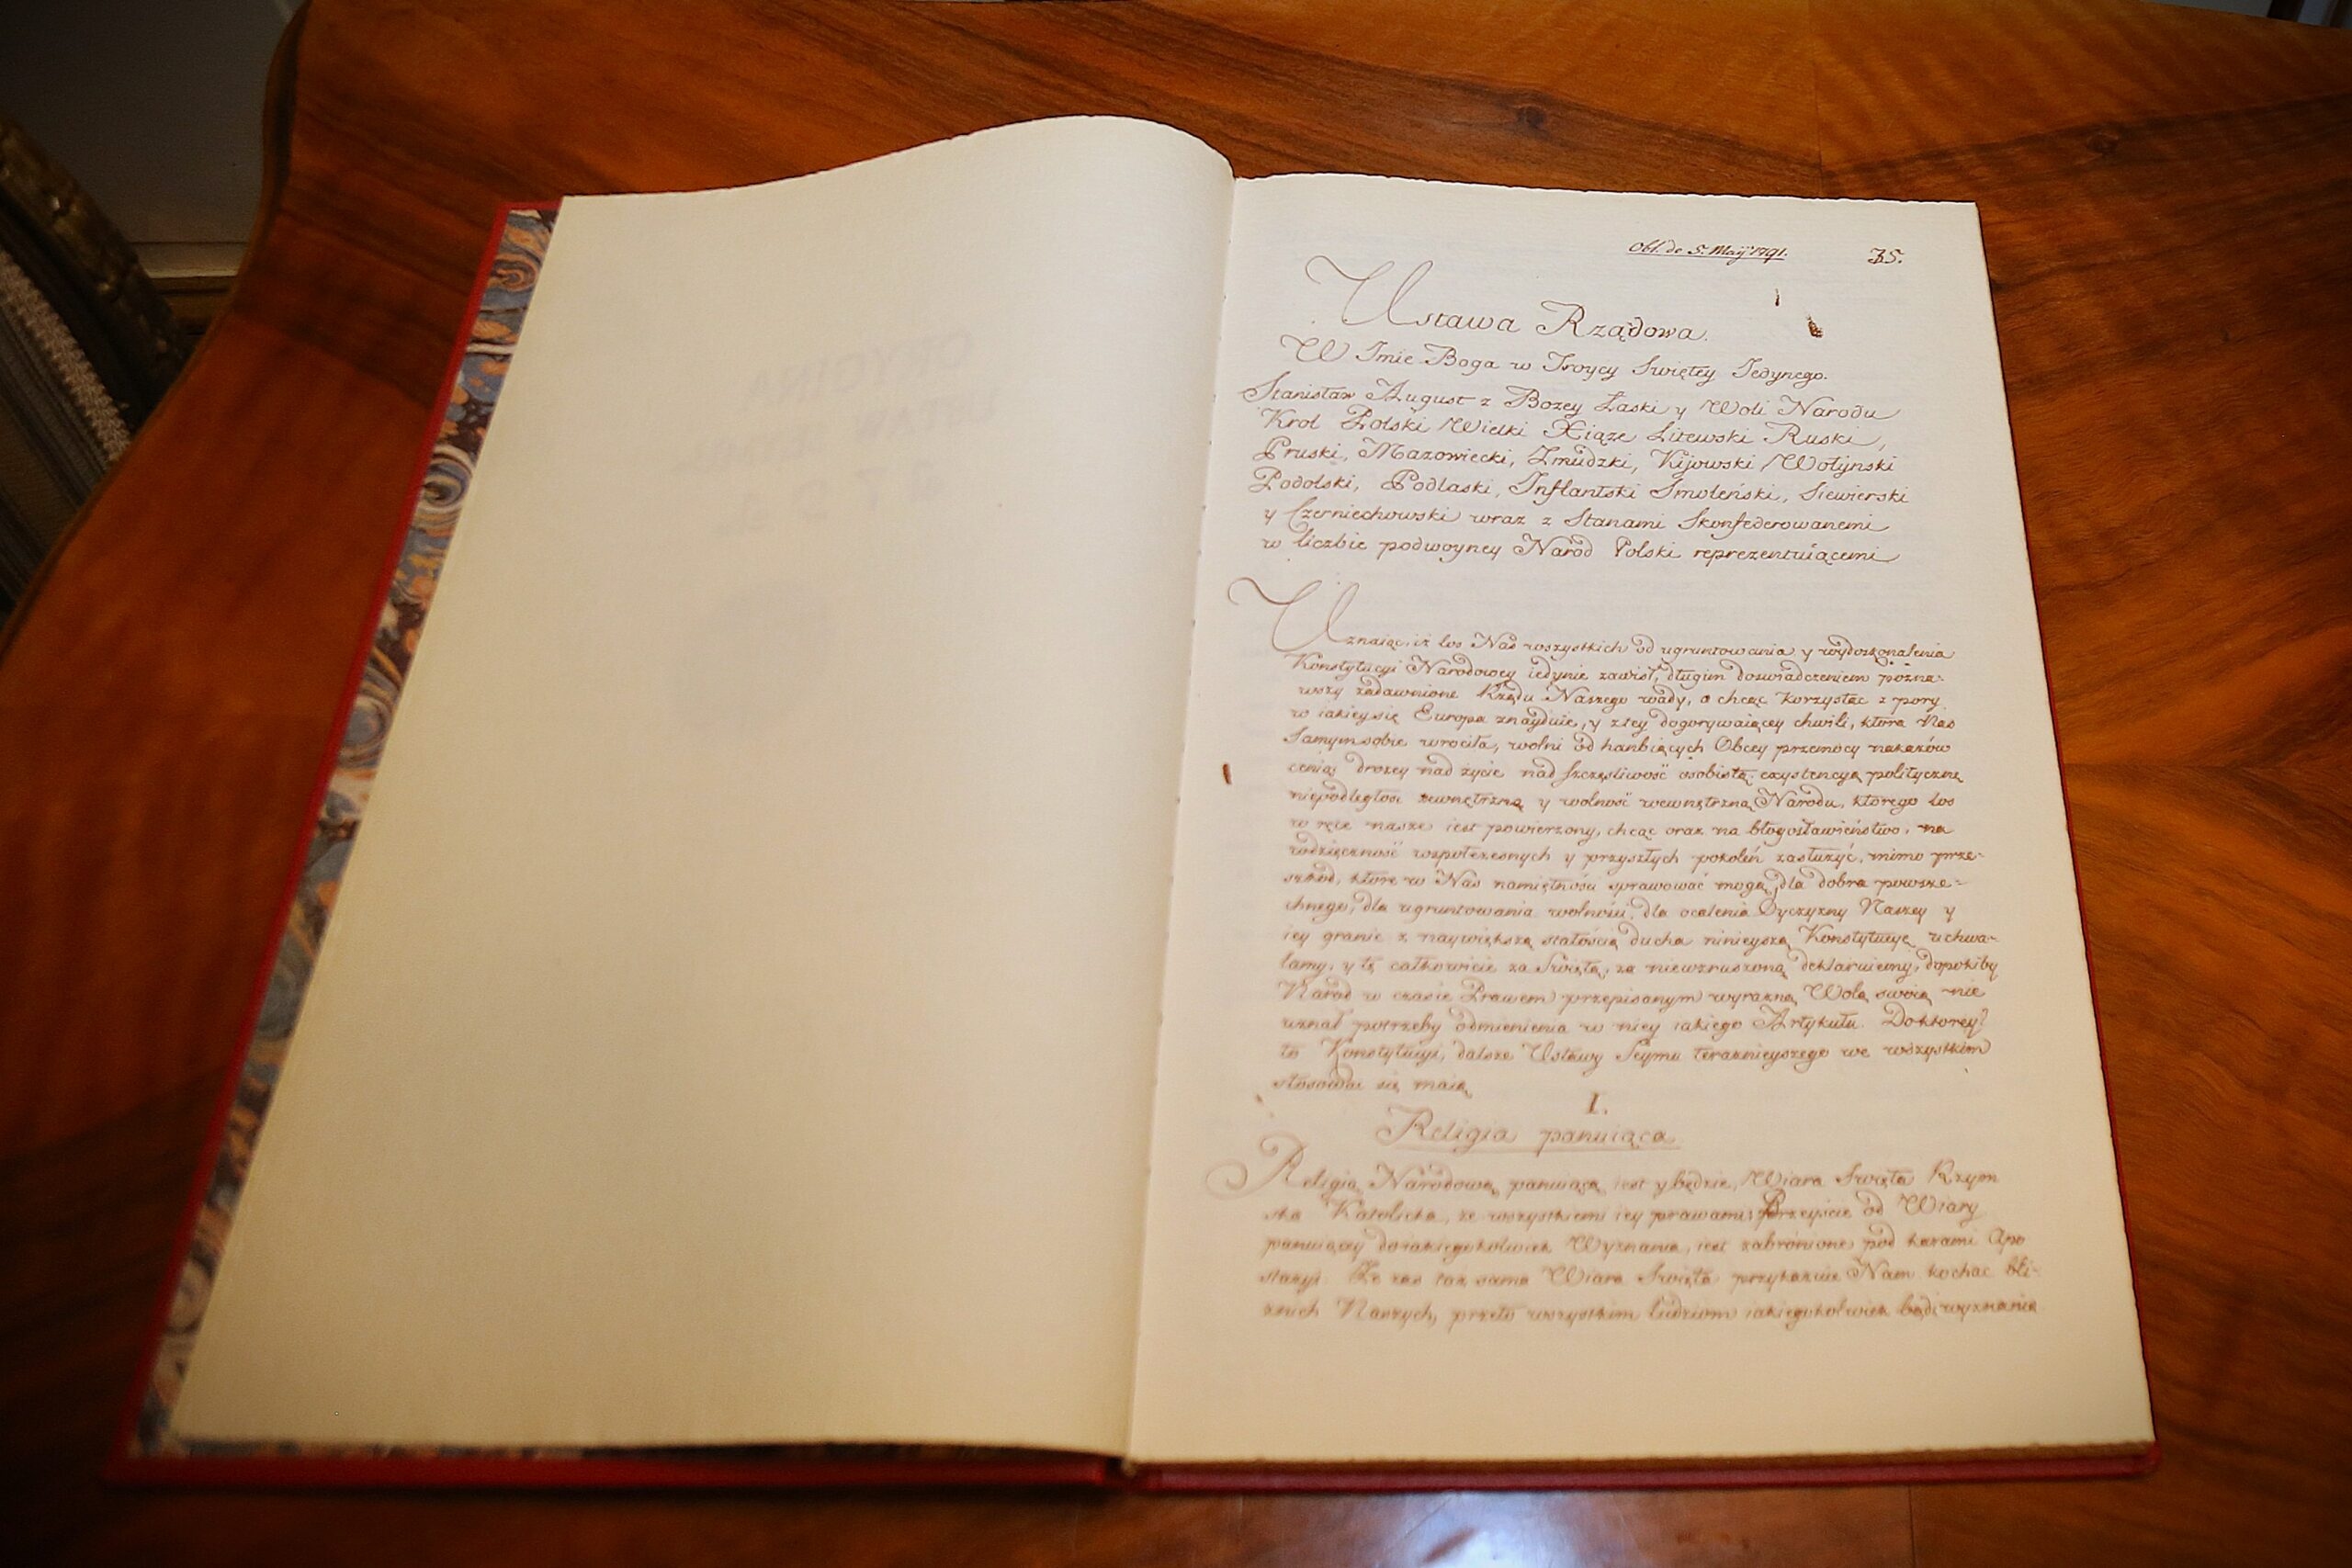 Obl. de 5. Maij 1791. 35.
Ustawa Rządowa.
W Imie Boga w Troycy Swiętey Jedynego.
Stanisław August z Bozey Łaski y Woli Narodu
Krol Polski Wielki Xiąze Litewski Ruski,
Pruski, Mazowiecki, Zmudzki, Kijowski Wołyński
Podolski, Podlaski, Inflantski Smoleński, Siewierski
y Czerniechowski wraz z Stanami Skonfederowanemi
w liczbie podwoyney Naród Polski reprezentuiącemi
Uznaiąc, iż los Nas wszystkich od ugruntowania y wydoskonalenia
Konstytucyi Narodowey iedynie zawisł, długim doswiadczeniem pozna-
wszy zadawnione Rządu Naszego wady, a chcąc korzystać z pory
w iakiey się Europa znayduie, y z tey dogorywaiącey chwili, która Nas
samym sobie wrociła, wolni od hanbiących Obcey przemocy nakazów
ceniąc drozey nad życie nad szczęsliwość osobistą, exystencyą polityczną
niepodległosc zewnętrzną y wolność wewnętrzną Narodu, którego los
w ręce nasze iest powierzony, chcąc oraz na błogosławieństwo, na
wdzięczność wspołczesnych y przyszłych pokoleń zasłużyć, mimo prze-
szkód, które w Nas namiętności sprawować mogą, dla dobra powsze-
chnego, dla ugruntowania wolności, dla ocalenia Oyczyzny Naszey y
iey granic z naywiększą stałością ducha ninieyszą Konstytucyę uchwa-
lamy, y tę całkowicie za Swiętą, za niewzruszoną deklaruiemy, dopokiby
Naród w czasie Prawem przepisanym wyrazną Wolą swoią nie
uznał potrzeby odmienienia w niey iakiego Artykułu. Do ktorey
to Konstytucyi, dalsze Ustawy Seymu teraznieyszego we wszystkim
stosować się maią
I.
Religia panuiąca
Religią Narodową panuiącą iest y będzie, Wiara Swięta Rzym
ska Katolicka, ze wszystkiemi iey prawami: Przeyście od Wiary
panuiącey do iakiegokolwiek Wyznania, iest zabronione pod karami Apo
stazyi. Ze zas taż sama Wiara Swięta przykazuie Nam kochac bli-
znich Naszych, przeto wszystkim ludziom iakiegokolwiek bądź wyznania